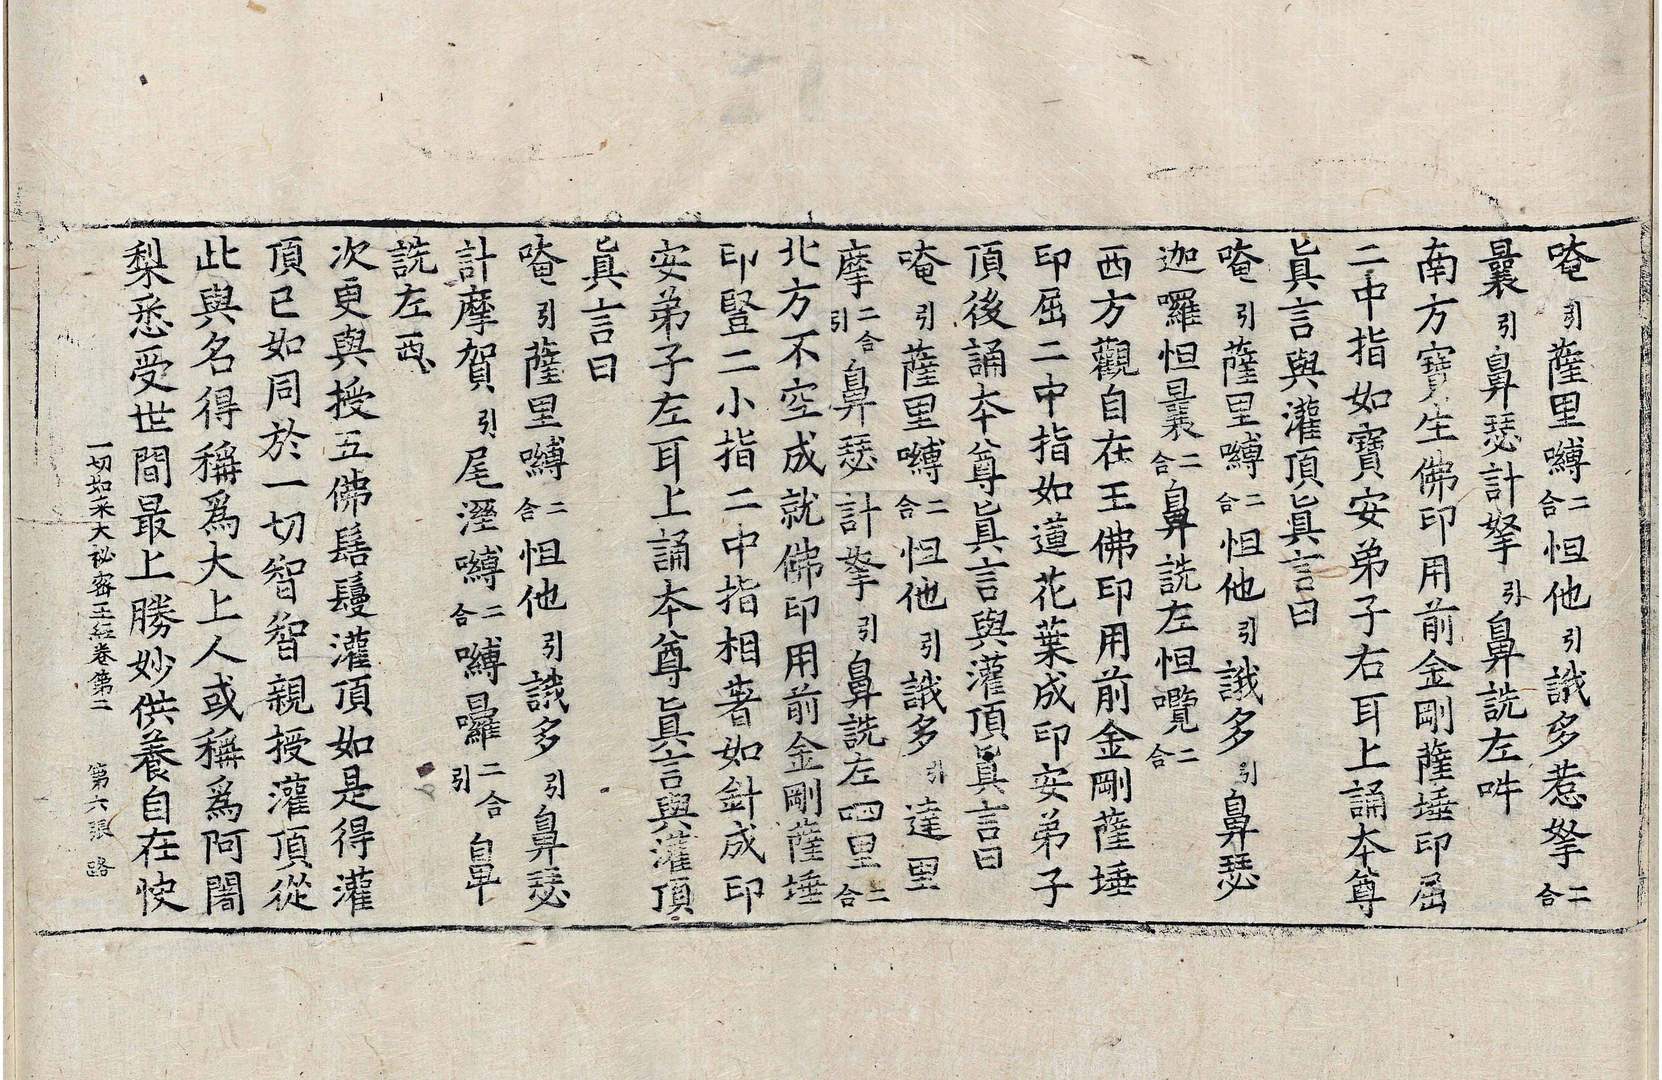 唵引薩里嚩二合怛他引誐多惹拏二合
曩引鼻瑟計拏引鼻詵左吽
南方寶生佛印用前金剛薩埵印屈
二中指如寶安弟子右耳上誦本尊
眞言與灌頂眞言曰
唵引薩里嚩二合怛他引誐多引鼻瑟
迦囉怛曩二合鼻詵左怛囕二合
西方觀自在王佛印用前金剛薩埵
印屈二中指如蓮花葉成印安弟子
頂後誦本尊眞言與灌頂眞言曰
唵引薩里嚩二合怛他引誐多引達里
摩二合引鼻瑟計拏引鼻詵左四里二合
北方不空成就佛印用前金剛薩埵
印豎二小指二中指相著如針成印
安弟子左耳上誦本尊眞言與灌頂
眞言曰
唵引薩里嚩二合怛他引誐多引鼻瑟
計摩賀引尾溼嚩二合嚩囉二合引鼻
詵左
次更與授五佛髻鬘灌頂如是得灌
頂已如同於一切智智親授灌頂從
此與名得稱爲大上人或稱爲阿闍
梨悉受世間最上勝妙供養自在快
一切如來大祕密王經卷第二 第六張 路